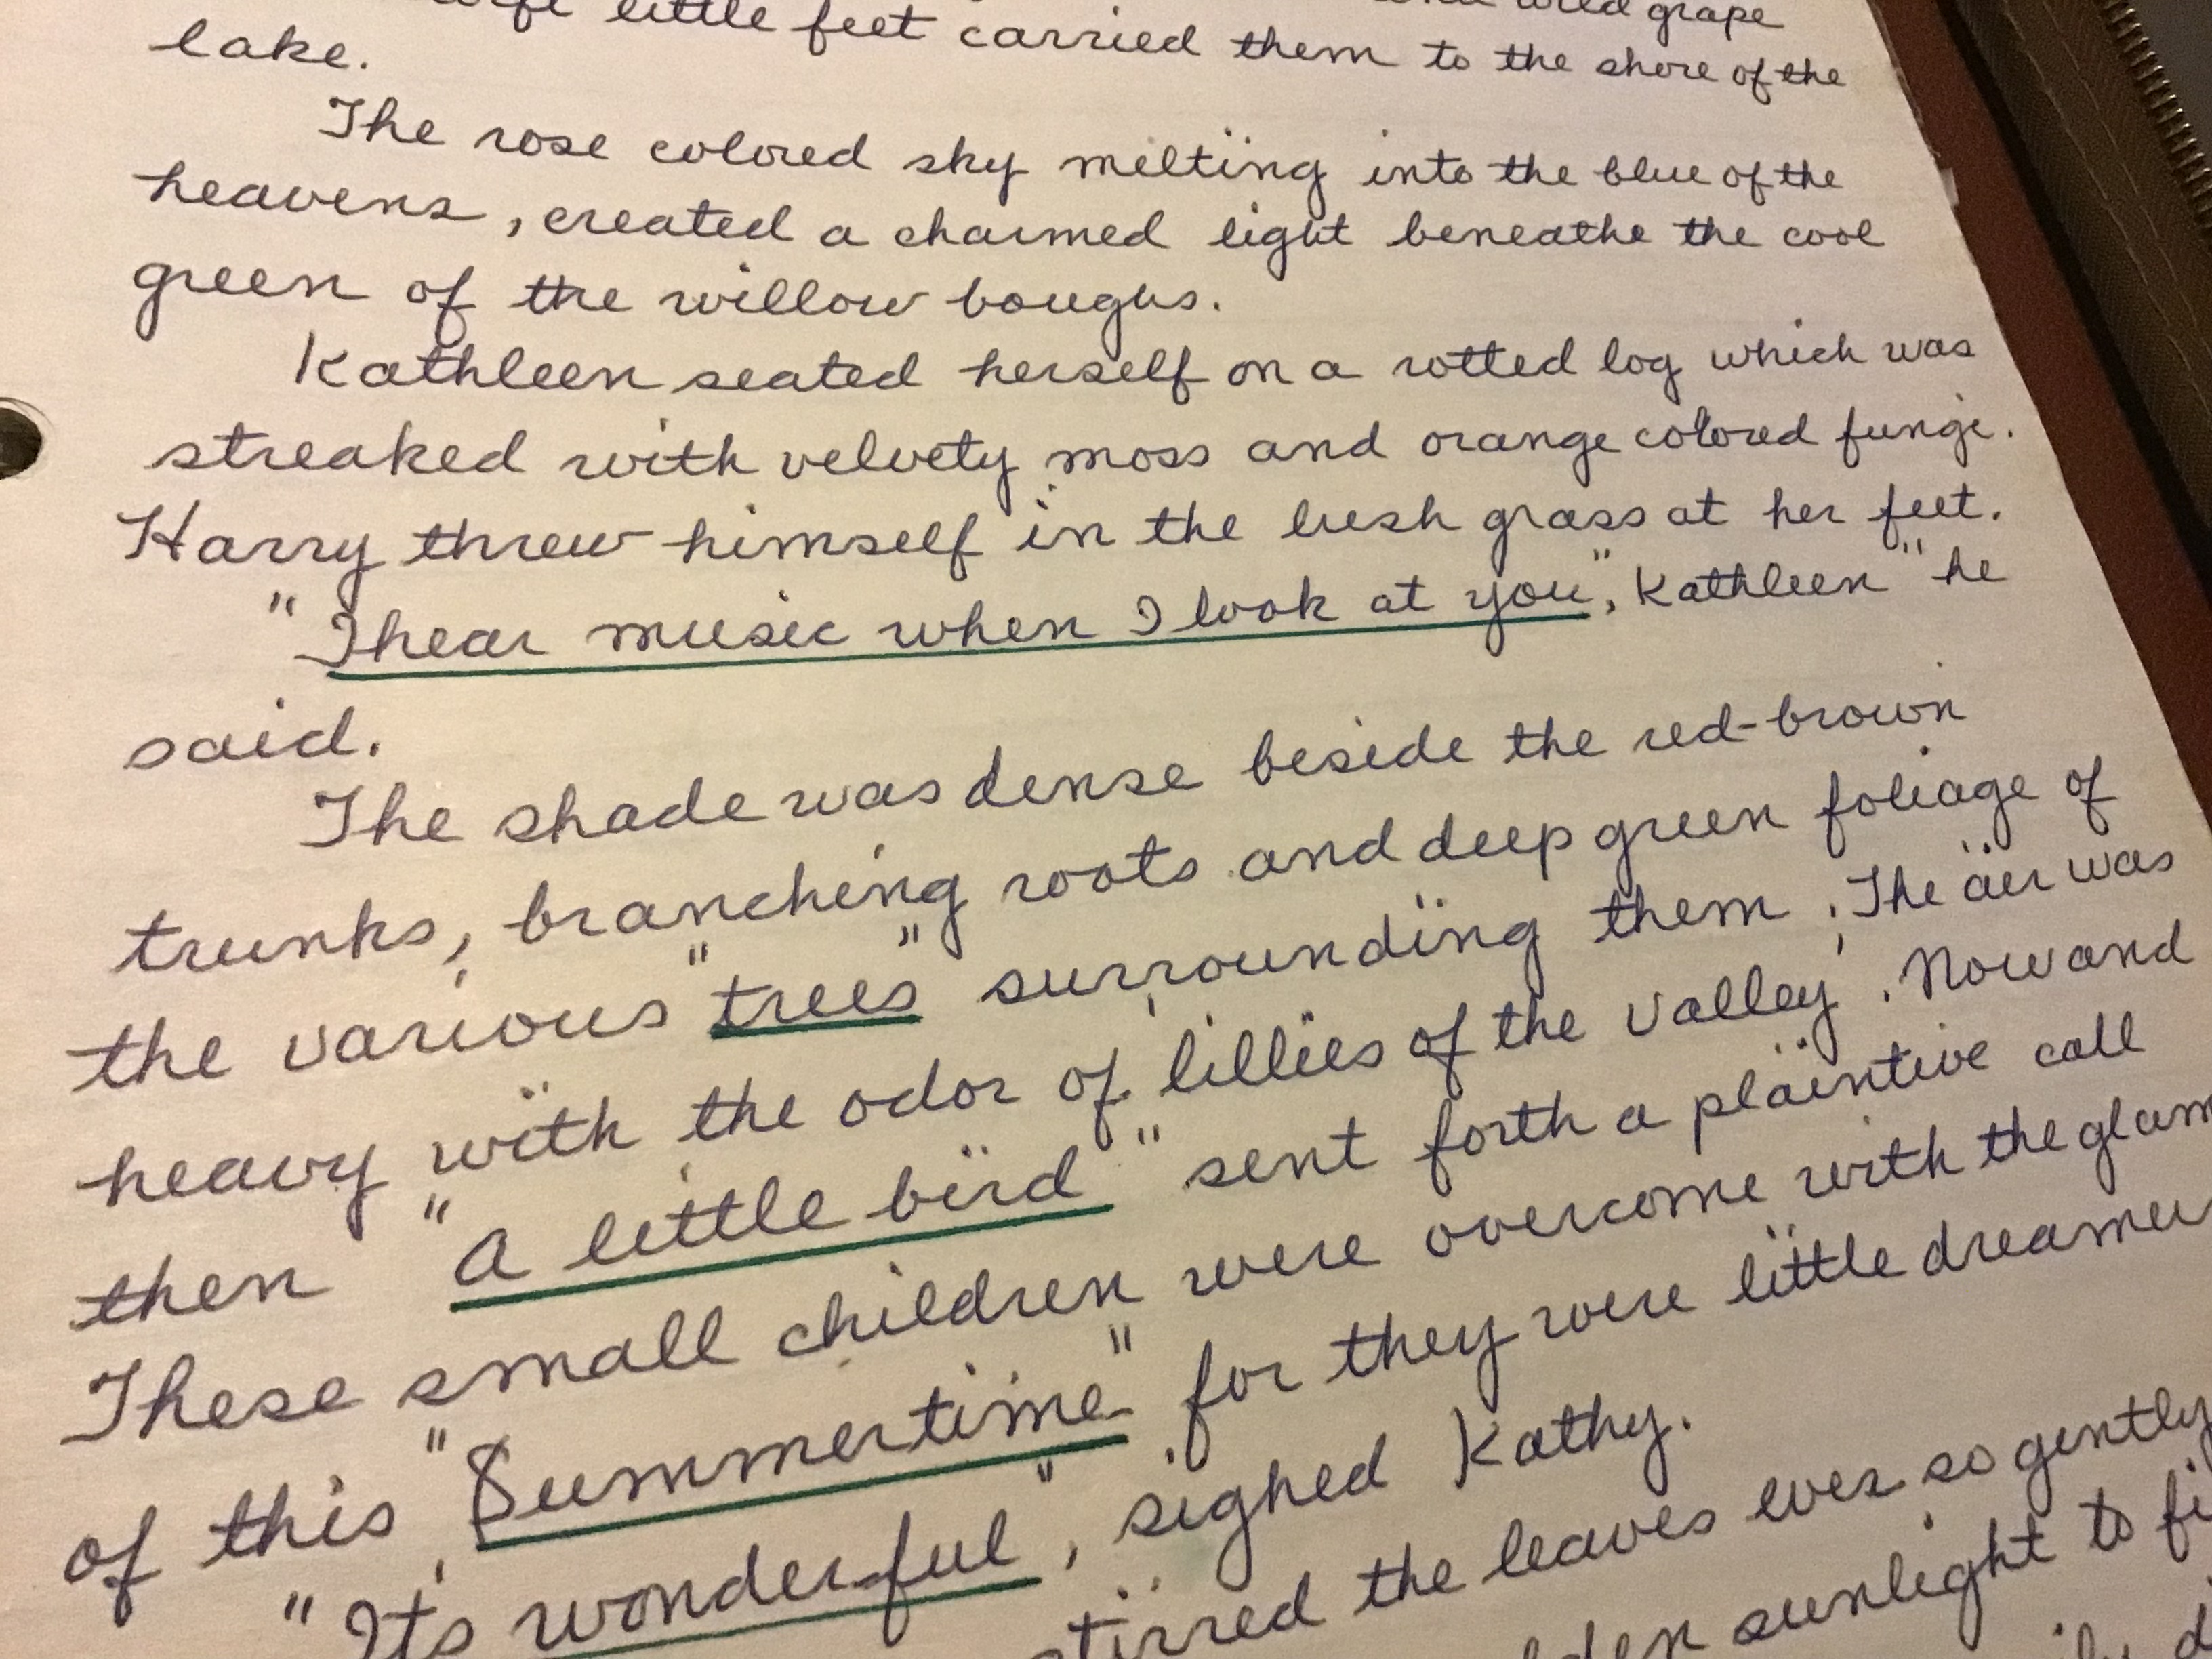 little feet carried them to the shore of the
wild grape
lake.
The rose colored sky melting into the blue of the
heavens, created a charmed light beneathe the cool
green of the willow boughs.
Kathleen seated herself on a rotted log which was
streaked with velvety moss and orange colored fungi.
Harry threw himself in the lush grass at her feet.
"I hear music when I look at you", Kathleen" he
said.
The shade was dense beside the red-brown
trunks, branching roots and deep green foliage of
the various "trees" surrounding them. The air was
heavy with the odor of lillies of the valley. Now and
then "A little bird" sent forth a plaintive call
These small children were overcome with the glam
of this "Summertime" for they were little dreamer
"Its wonderful", sighed Kathy.
stirred the leaves ever so gently
sunlight to